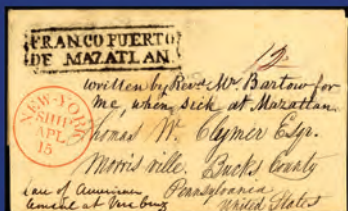 FRANCO PUERTO
DE MAZATLAN
12
written by Revd Mr. Bartow for
me, when sick at Mazatlan
NEW-YORK
SHIP
APL
15
Thomas W. Clymer Esqr.
Morrisville. Bucks County
Pennsylvania
United States
Care of American
Consul at Vera Cruz